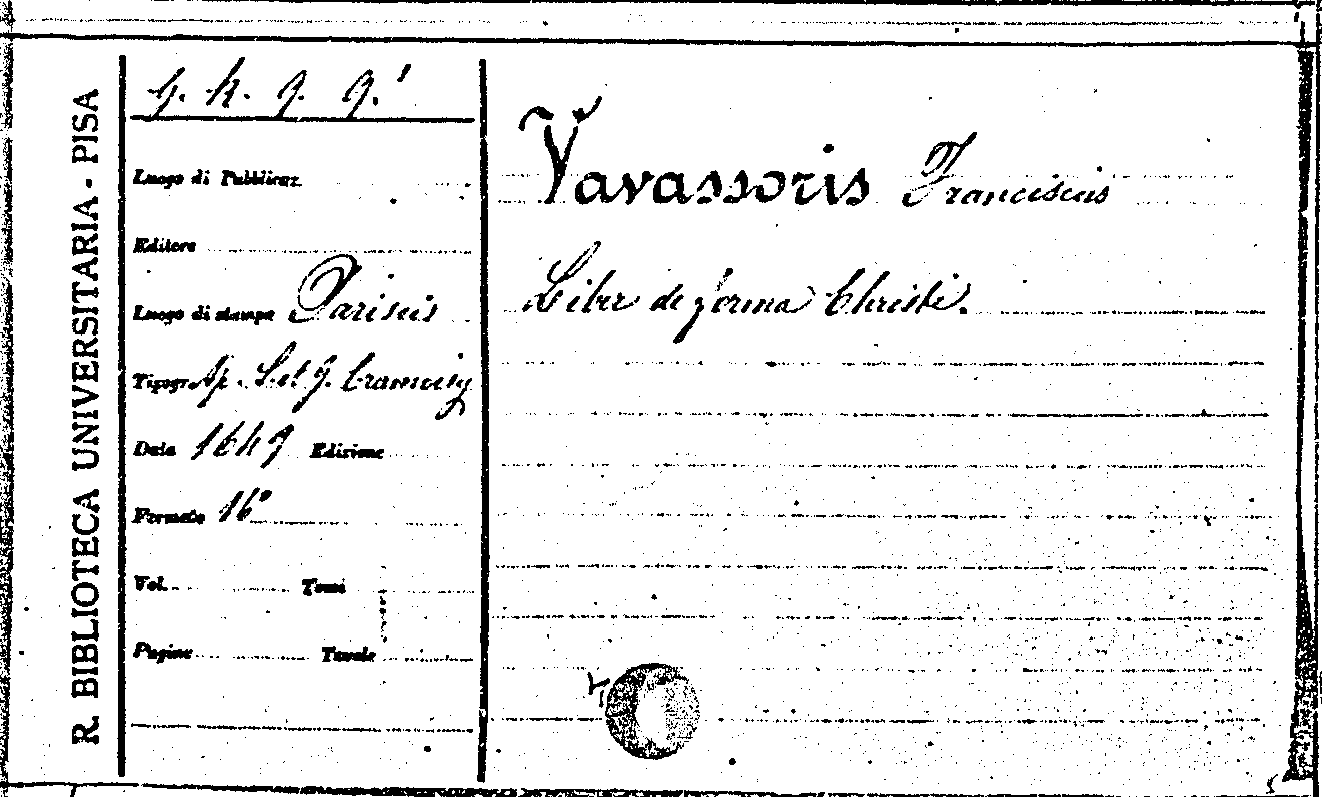 R. BIBLIOTECA UNIVERSITARIA - PISA
Luogo di Pubblicaz.
Editore
Luogo di stampa Parisiis
Tipogr. Ap. S. et G. Cramoisy
Data 1649 Edizione
Formato 16°
Vol. Tomi
Pagine Tavole
Vavassoris Franciscus
Liber de forma Christi.